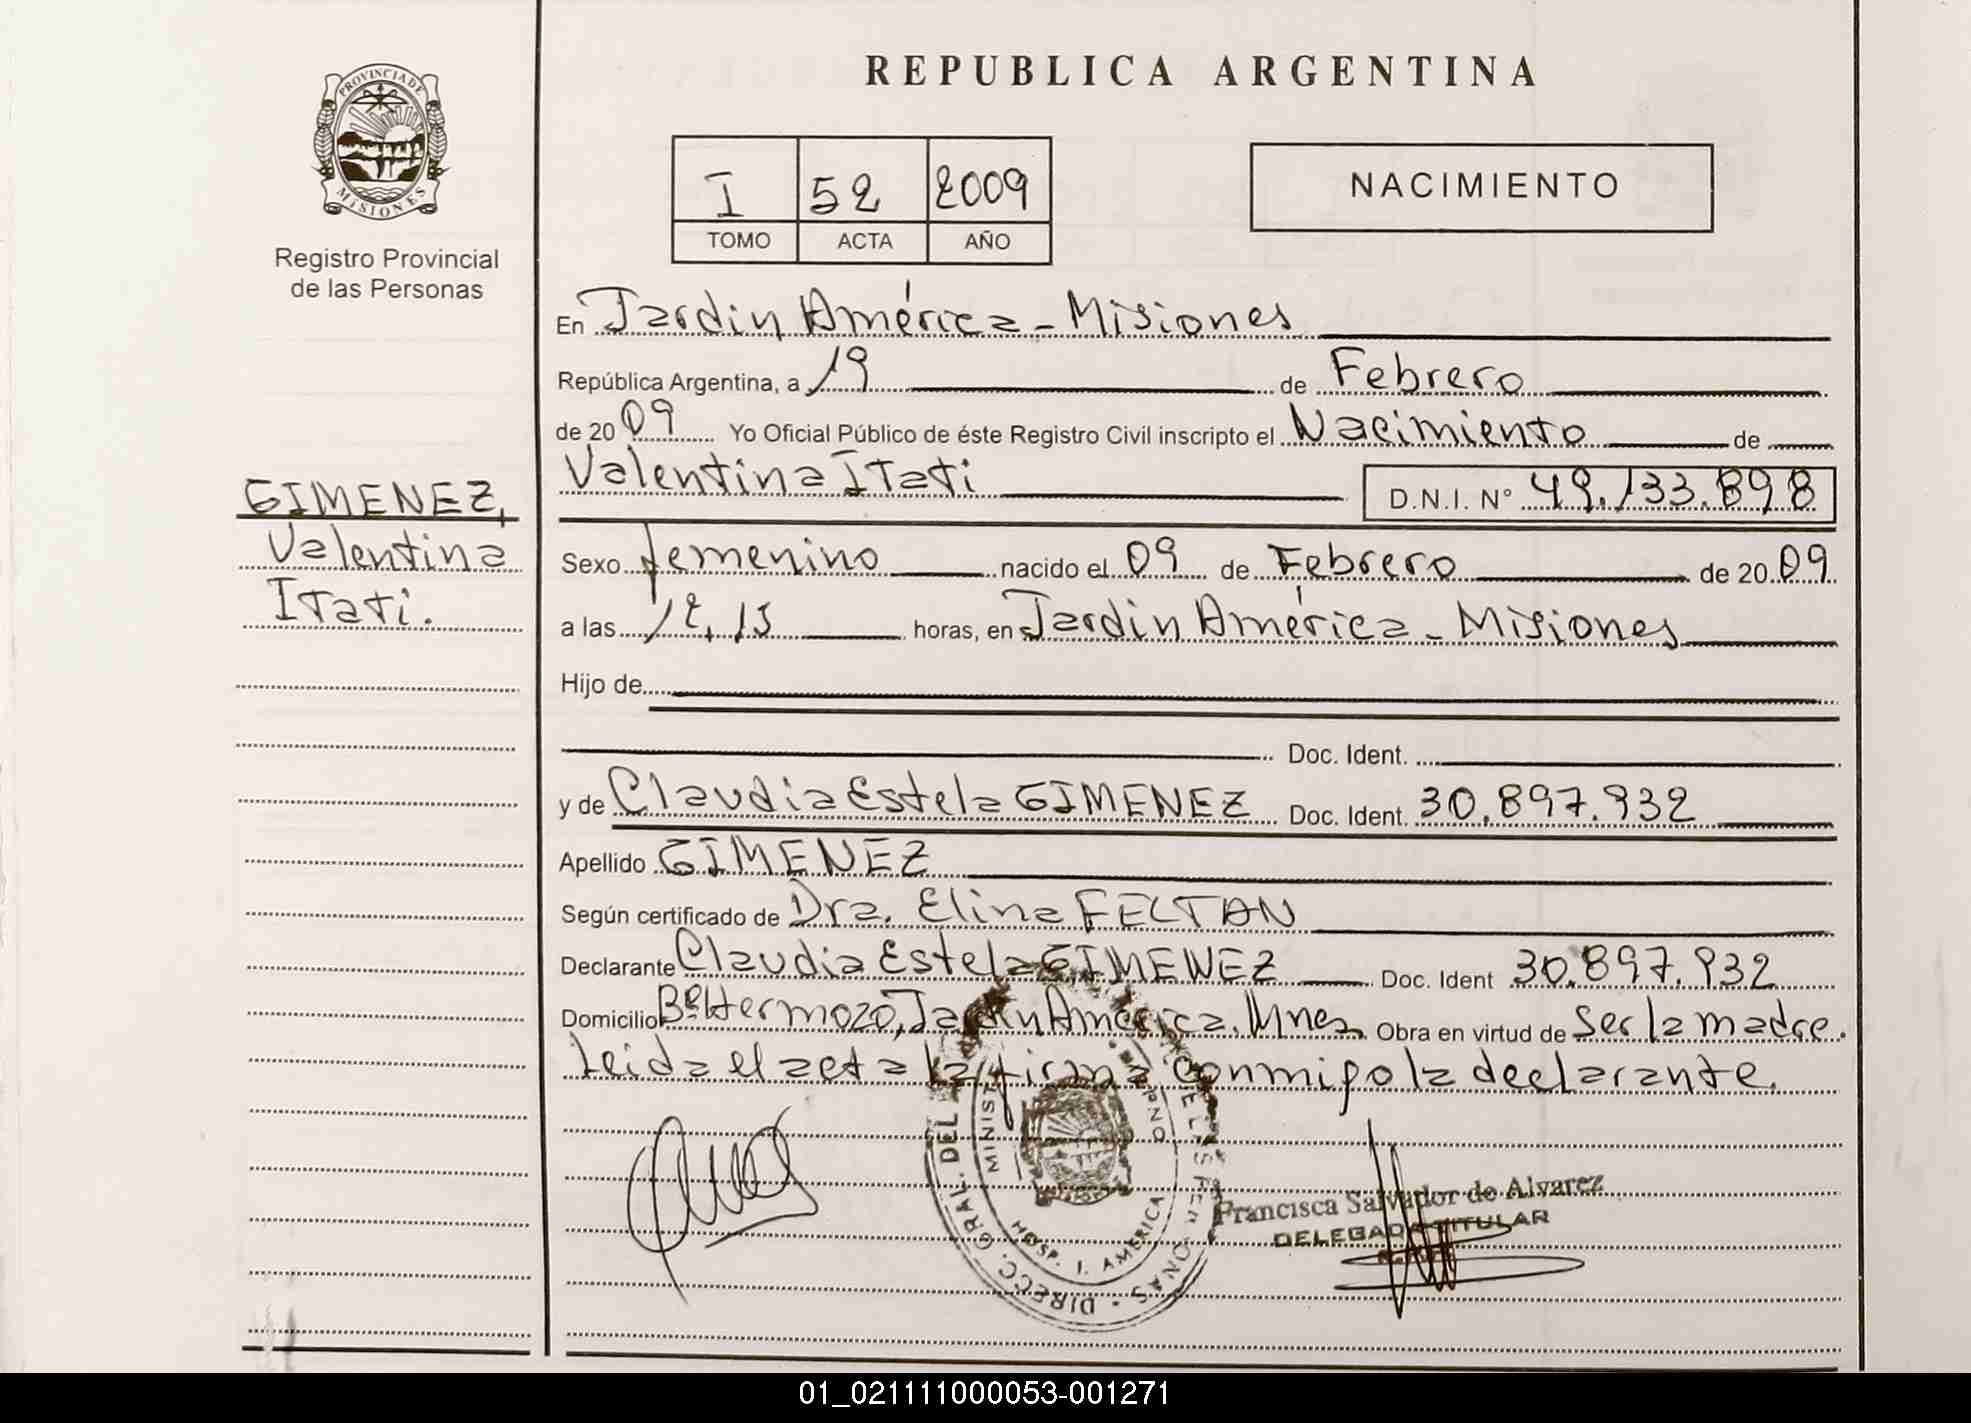 REPUBLICA ARGENTINA
PROVINCIA DE
MISIONES
Registro Provincial
de las Personas
I 52 2009
TOMO ACTA AÑO
NACIMIENTO
En Jardín América - Misiones
República Argentina, a 19 de Febrero
de 20 09 Yo Oficial Público de éste Registro Civil inscripto el Nacimiento de
Valentina Itati D.N.I. N° 49.133.898
GIMENEZ,
Valentina
Itati.
Sexo femenino nacido el 09 de Febrero de 20 09
a las 12,15 horas, en Jardín América - Misiones
Hijo de
Doc. Ident.
y de Claudia Estela GIMENEZ Doc. Ident. 30.897.932
Apellido GIMENEZ
Según certificado de Dra. Elina FELTAN
Declarante Claudia Estela GIMENEZ Doc. Ident 30.897.932
Domicilio Bº Hermozo, Jardín América, Mnes Obra en virtud de Ser la madre.
Leida el acta la firma conmigo la declarante.
DIRECC. GRAL. DEL
MINIST
HOSP. J. AMERICA
Francisca Salvador de Alvarez
DELEGADA TITULAR
01_021111000053-001271